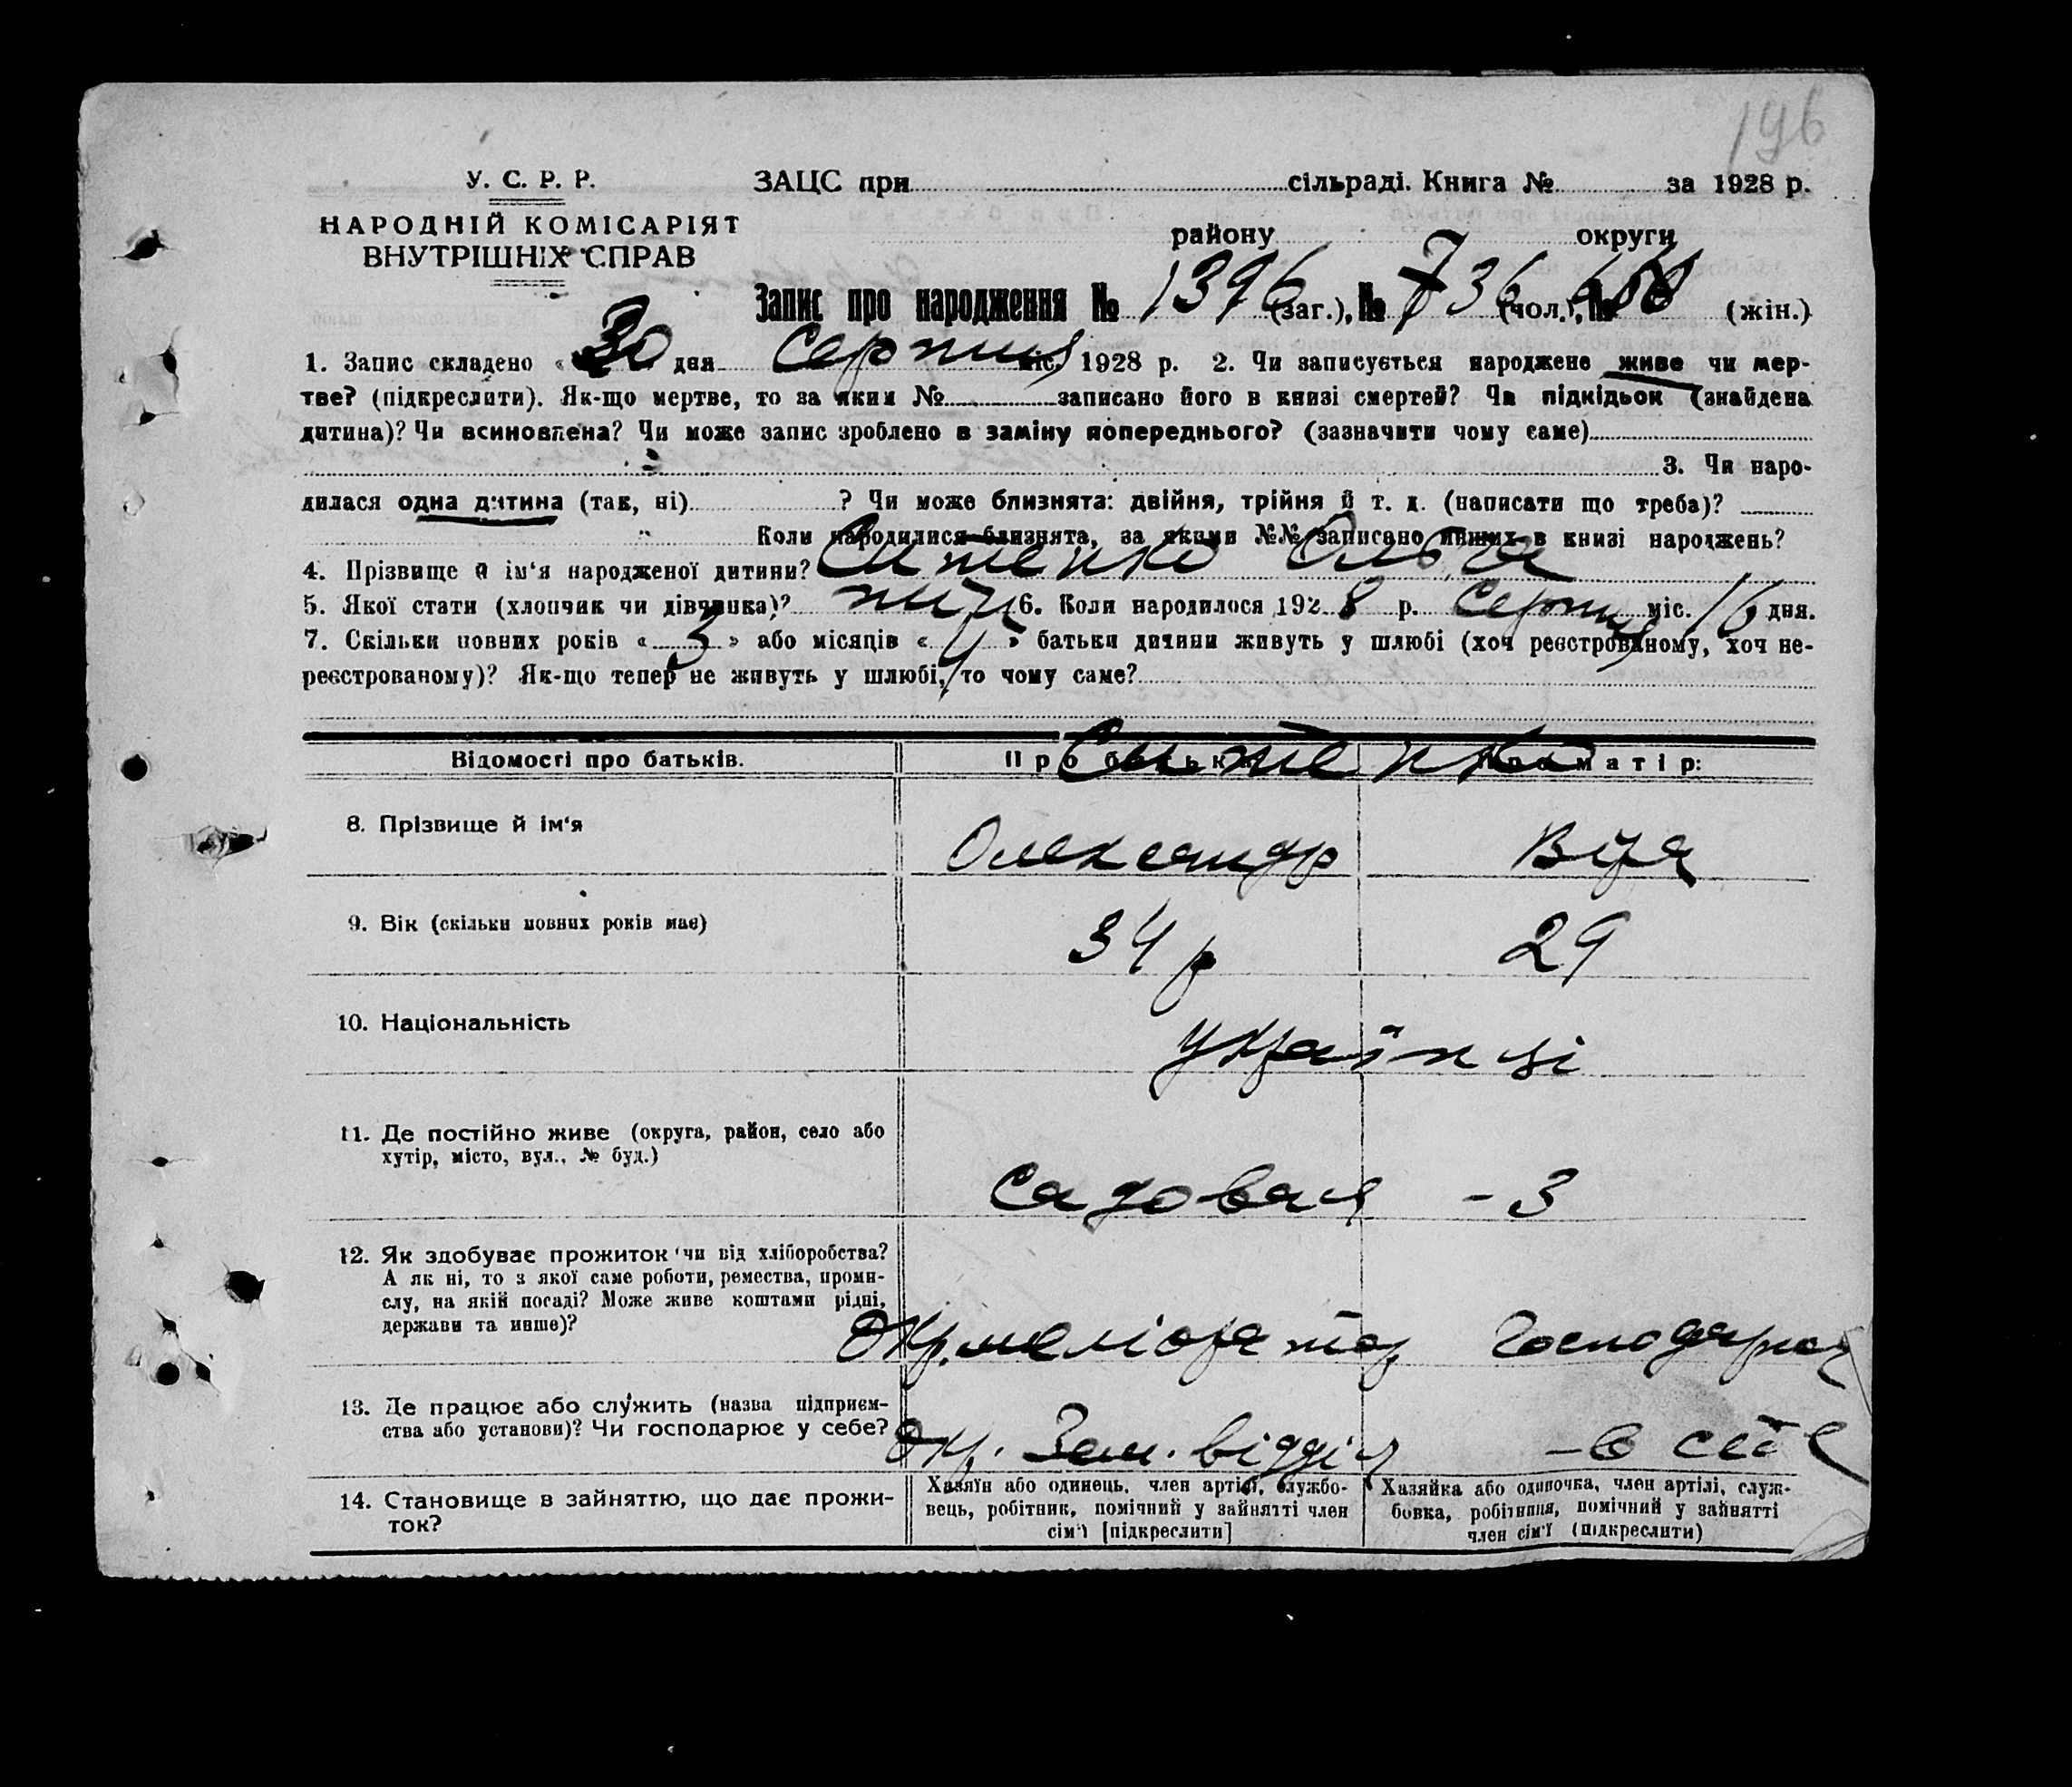 196
У. С. Р. Р.
ЗАЦС при сільраді. Книга № за 1928 р.
НАРОДНІЙ КОМІСАРІЯТ
ВНУТРІШНІХ СПРАВ
району округи
Запис про народження № 1396 (заг.), № 736 (чол.), № (жін.)
1. Запис складено « 30 дня серпня міс. 1928 р. 2. Чи записується народжене живе чи мер-
тве? (підкреслити). Як-що мертве, то за яким № записано його в книзі смертей? Чи підкідьок (знайдена
дитина)? Чи всиновлена? Чи може запис зроблено в заміну попереднього? (зазначити чому саме)
3. Чи наро-
дилася одна дитина (так, ні) ? Чи може близнята: двійня, трійня й т. д. (написати що треба)?
Коли народилися близнята, за якими №№ записано инших в книзі народжень?
4. Прізвище й ім'я народженої дитини? Ситенко Ольга
5. Якої стати (хлопчик чи дівчинка)? 6. Коли народилося 1928 р. Серпня міс. 16 дня.
7. Скільки повних років « 3 » або місяців « 4 » батьки дитини живуть у шлюбі (хоч реєстрованому, хоч не-
реєстрованому)? Як-що тепер не живуть у шлюбі, то чому саме?
Відомості про батьків. Про батька Про матір:
Ситенко
8. Прізвище й ім'я Олександр Віра
9. Вік (скільки повних років має) 34 р 29
10. Національність українці
11. Де постійно живе (округа, район, село або
хутір, місто, вул., № буд.)
Садовая - 3
12. Як здобуває прожиток чи від хліборобства?
А як ні, то з якої саме роботи, ремества, проми-
слу, на якій посаді? Може живе коштами рідні,
держави та инше)?
Окр. меліоратор Господарює
13. Де працює або служить (назва підприєм-
ства або установи)? Чи господарює у себе?
Окр. Зем. відділ - в себе
14. Становище в зайняттю, що дає прожи-
ток?
Хазяїн або одинець, член артілі, службо-
вець, робітник, помічний у зайнятті член
сім'ї [підкреслити]
Хазяйка або одиночка, член артілі, служ-
бовка, робітниця, помічний у зайнятті
член сім'ї (підкреслити)